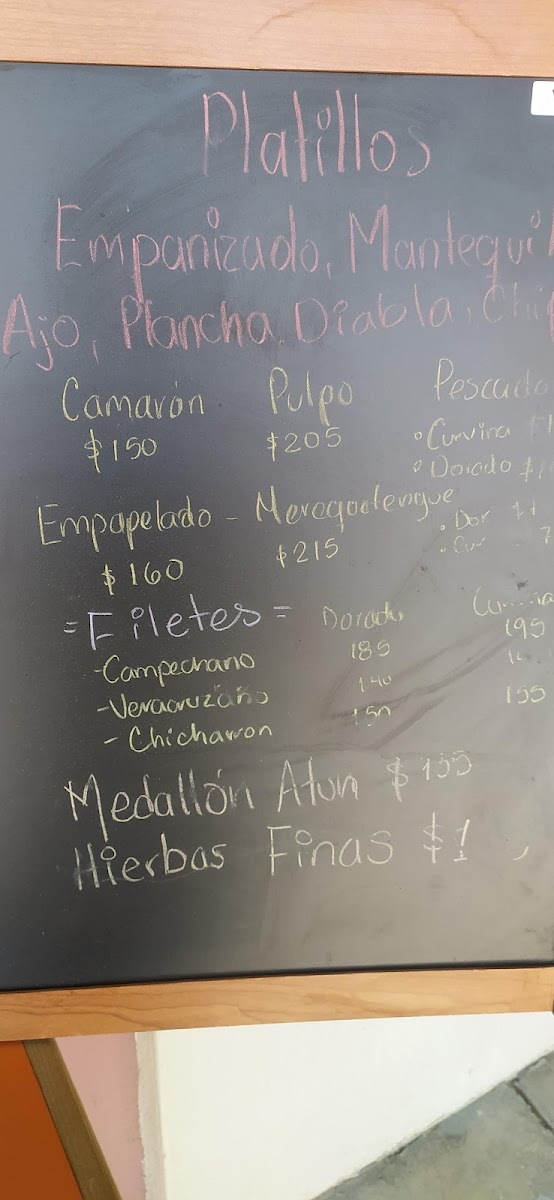 Platillos
Empanizado, Mantequi
Ajo, Plancha, Diabla, Chi
Camarón Pulpo Pescado
$150 $205 • Curvina $1
• Dorado $1
Empapelado - Merequetengue
$160 $215 • Dor $1
• Cur 7
= Filetes = Dorado
- Campechano 185 195
- Veracruzano 140 1
- Chicharron 150 155
Medallón Atun $155
Hierbas Finas $1